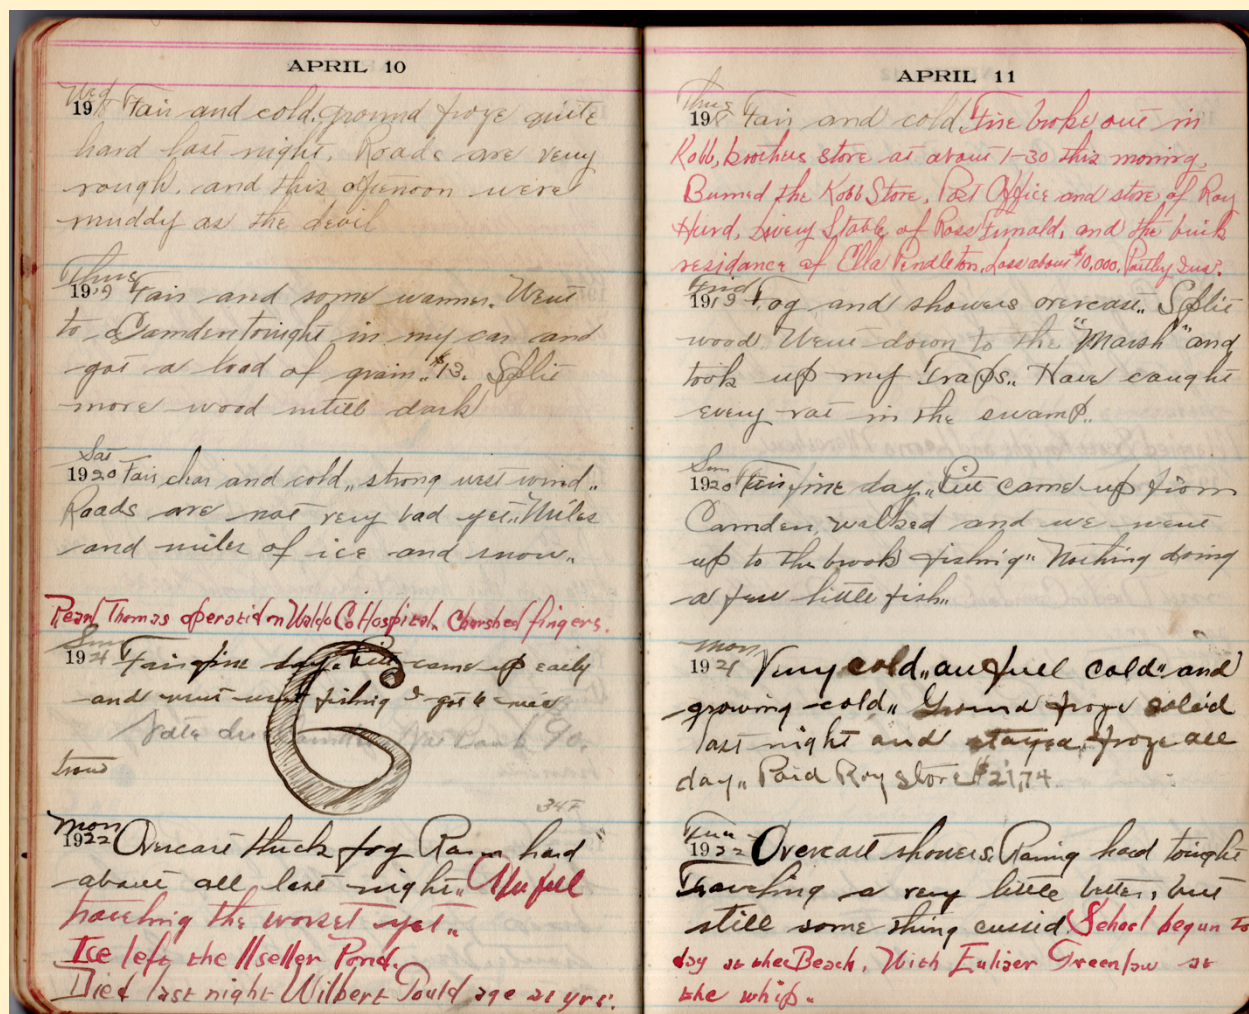 APRIL 10
Wed
1918 Fair and cold. ground froze quite
hard last night. Roads are very
rough. and this afternoon were
muddy as the devil
Thurs
1919 Fair and some warmer. Went
to Camden tonight in my car and
got a load of grain.. $13. Split
more wood untill dark
Sat
1920 Fair and cold,, strong west wind..
Roads are not very bad yet.. Miles
and miles of ice and snow..
Pearl Thomas operated on Waldo Co Hospital. fingers.
Sun
1921 Fair fine day. came up early
and went fishing I got 6 nice
Note due 90.
trout
347
Mon
1922 Overcast thick fog Rain hard
about all last night.. Awfull
traveling the worset yet..
Ice left the Pond.
Died last night Wilbert age 21 yrs.
APRIL 11
Thus
1918 Fair and cold. Fire broke out in
Robb, brothers store at about 1-30 this morning,
Burned the Robb Store, Post Office and store of Roy
Hurd, Livery Stable of Ross and the
residance of Ella Pendleton. Loss about $10,000. Partley Ins.
Frid
1919 Fog and showers overcast.. Split
wood. Went down to the "Marsh" and
took up my Traps.. Have caught
every rat in the swamp..
Sun
1920 Fair fine day,, came up from
Camden, walked and we went
up to the brook fishing.. Nothing doing
a few little fish..
Mon
1921 Very cold,, awfull cold.. and
growing cold,, Ground froze soled
last night and stayed froze all
day,, Paid Roy store $21,74.
Tue
1922 Overcast showers. Raining hard tonight
Traveling a very little better, but
still some thing cussid. School begun to
day at the Beach. With Greenlaw at
the whip..